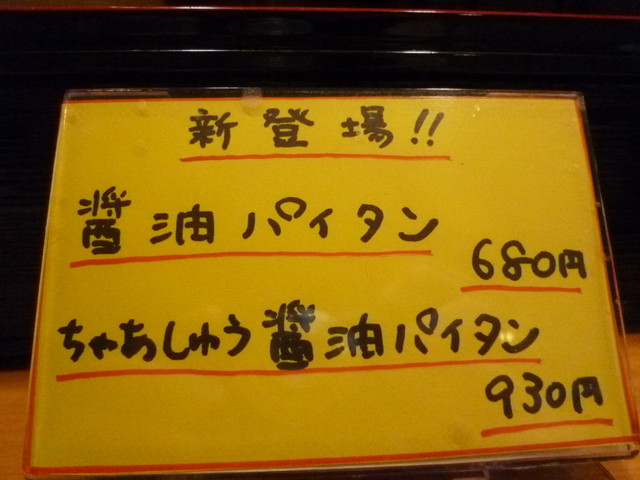 新登場!!
醤油パイタン
680円
ちゃあしゅう醤油パイタン
930円